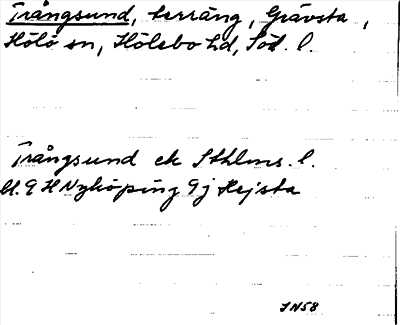 Trångsund, terräng, Grävsta,
Hölö sn, Hölebo hd, Söd. l.
Trångsund ek Sthlms. l.
bl. 9 H Nyköping 9j Hejsta
JN58